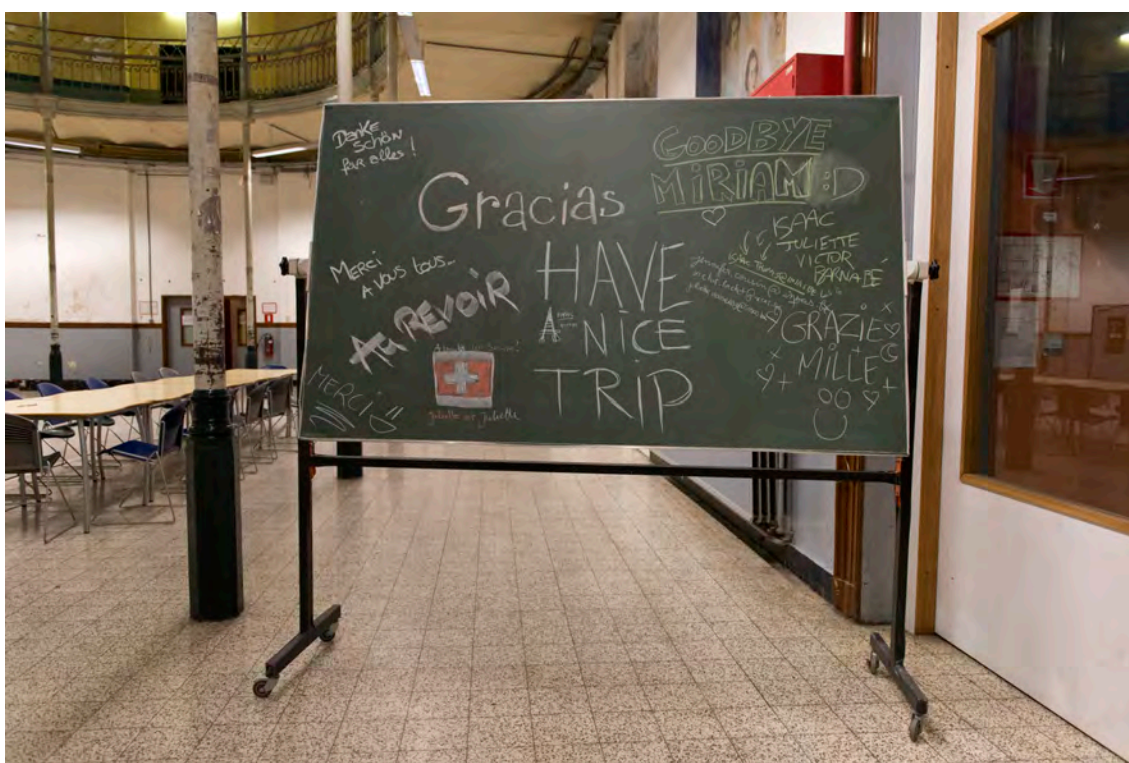 Danke
Schön
für alles !
Gracias
GOODBYE
MIRIAM :D
ISAAC
JULIETTE
VICTOR
BARNABÉ
Merci
A vous tous...
Au REVOIR
HAVE
A NICE
TRIP
GRAZIE
MILLE
MERCI
Juliette et Juliette